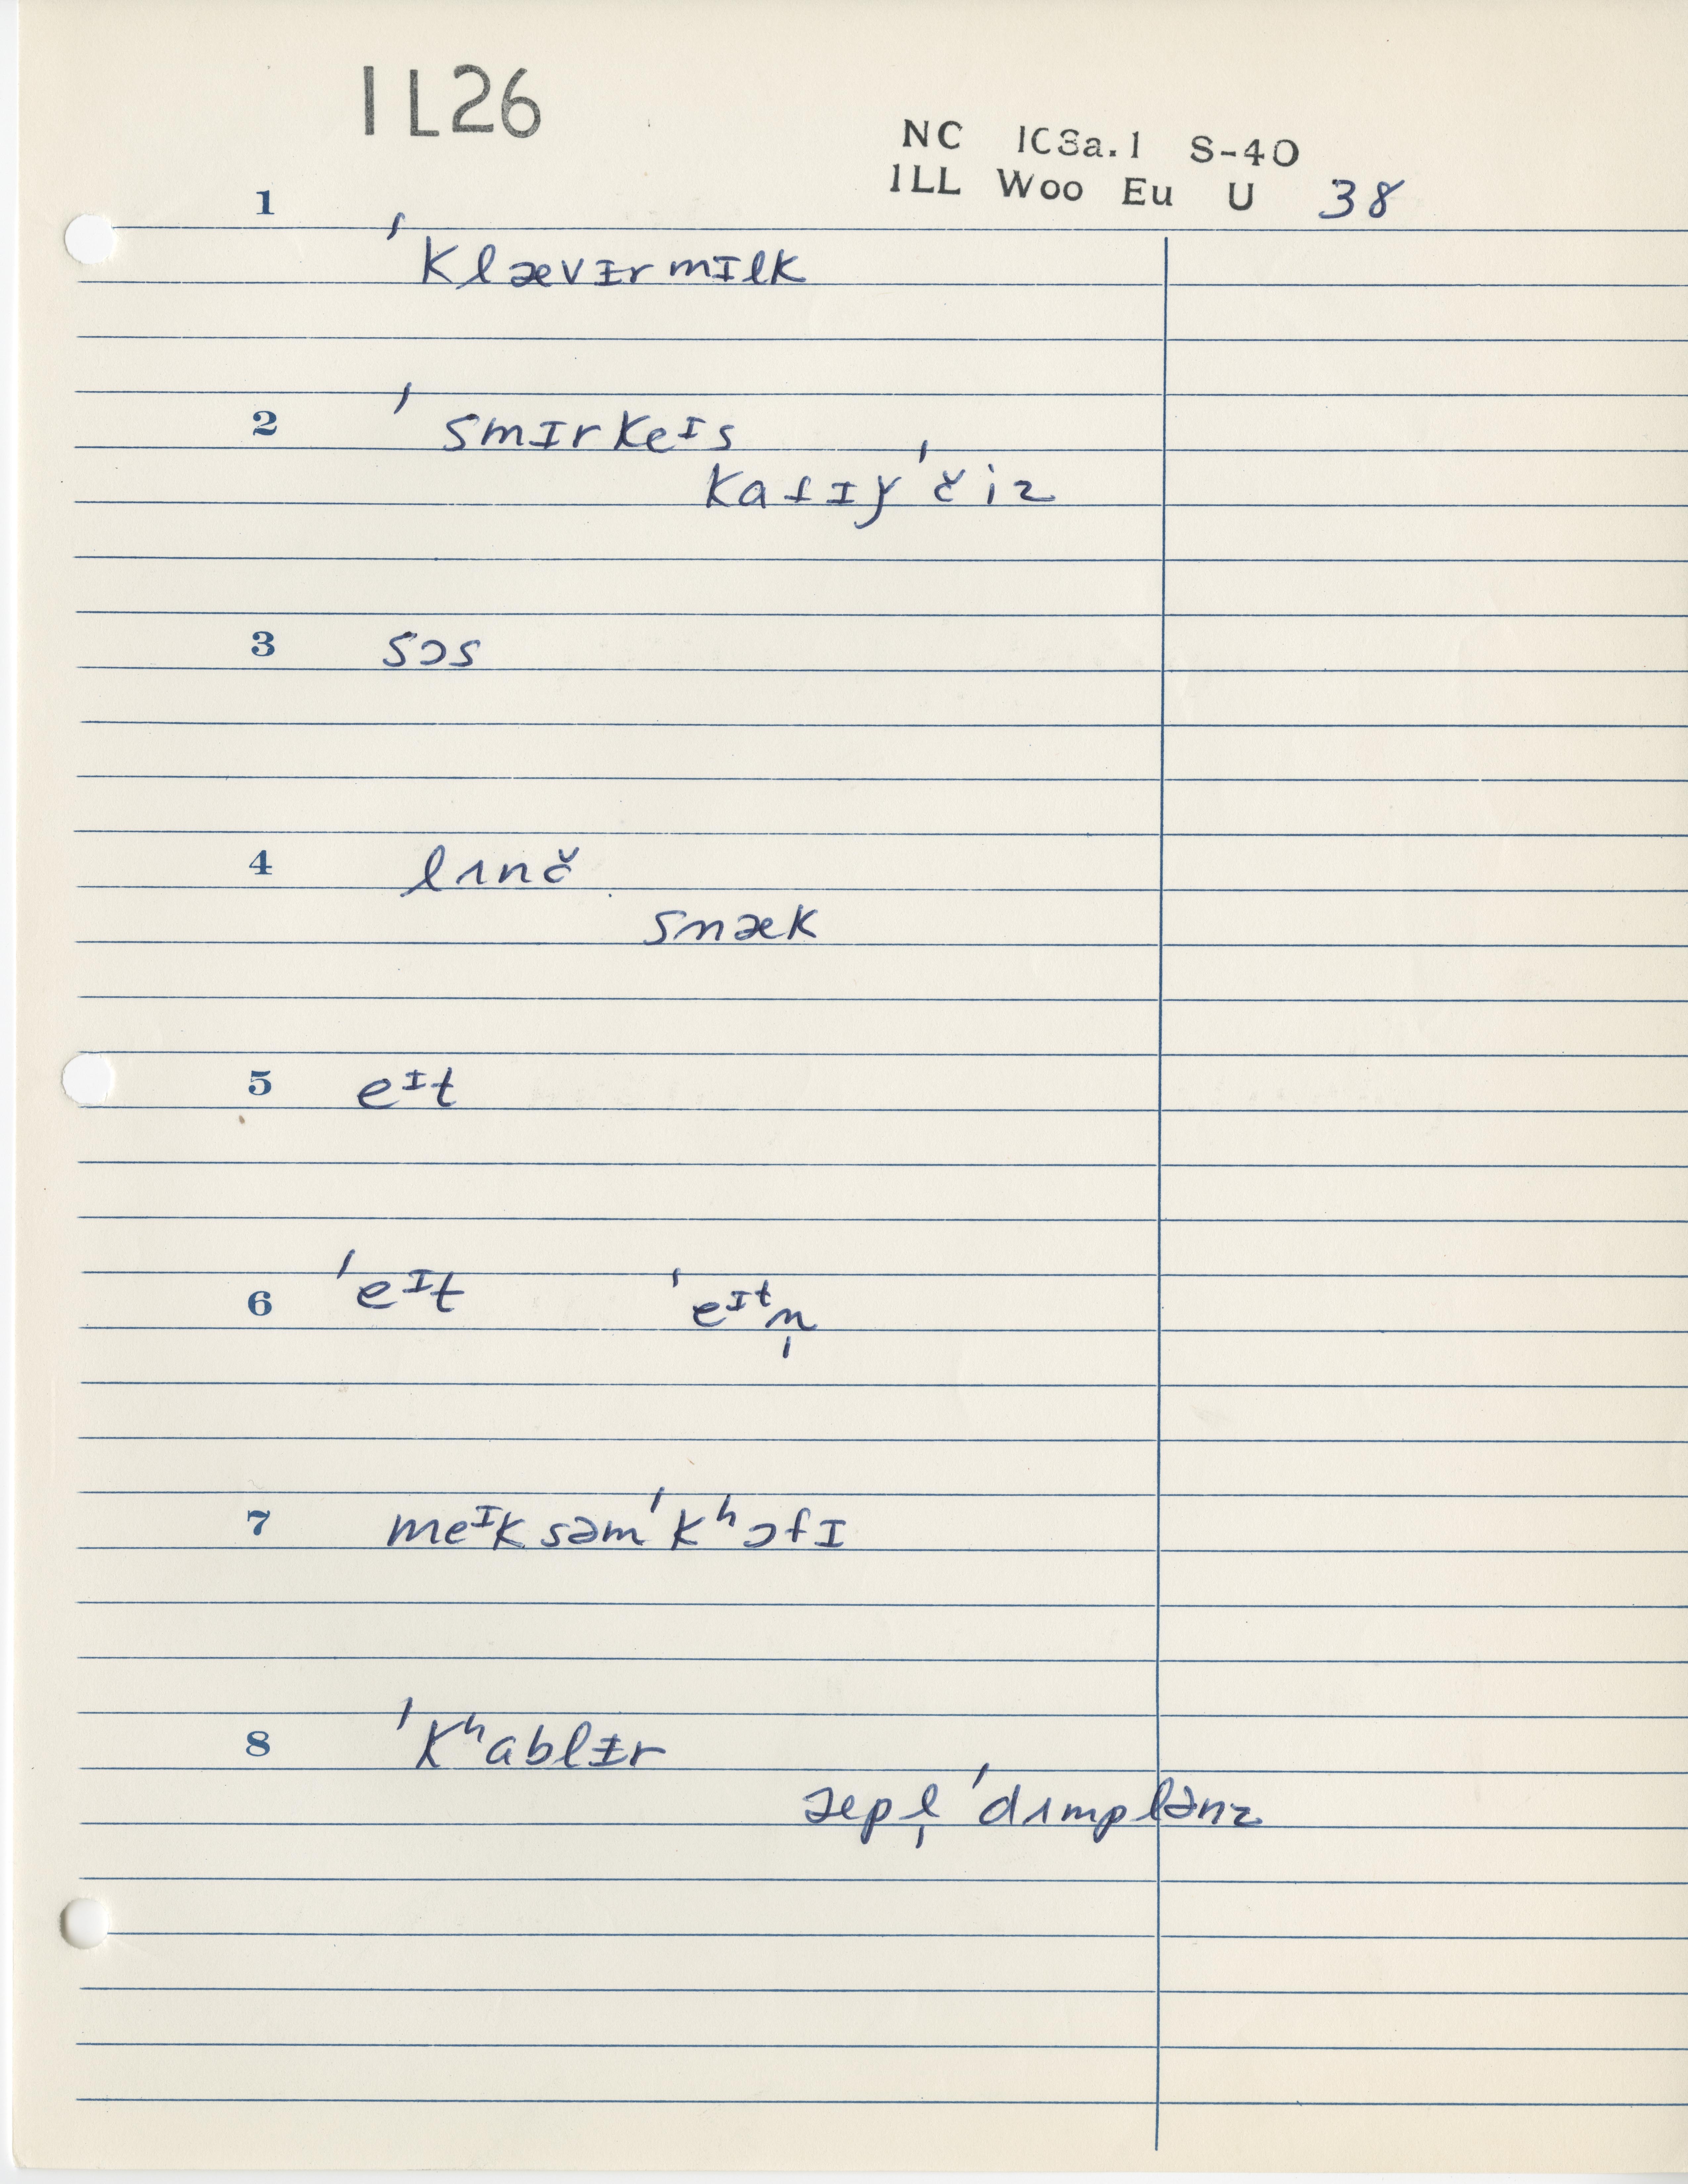 IL26
NC IC3a.1 S-40
ILL Woo Eu U 38
1 ˈklævɪrmɪlk
2 ˈsmɪrkeᴵs
ˈčiz
3 sɔs
4 lʌnč
snæk
5 eᴵt
6 ˈeᴵt ˈeᴵᵗn̩
7 meᴵksəmˈkʰɔfɪ
8 ˈkʰablɪr
æpl̩ ˈdʌmplənz